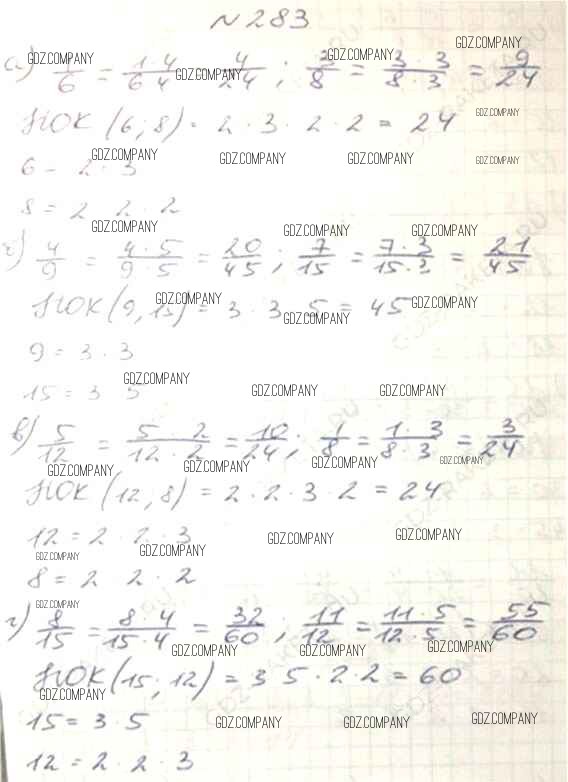 №283
а) 1/6 = 1·4/6·4 4/24; 3/8 = 3·3/8·3 = 9/24
НОК (6;8) = 2·3·2·2 = 24
6 = 2·3
8 = 2 2·2
б) 4/9 = 4·5/9·5 = 20/45; 7/15 = 7·3/15·3 = 21/45
НОК (9,15) = 3·3 5 = 45
9 = 3·3
15 = 3 5
в) 5/12 = 5·2/12·2 = 10/24; 1/8 = 1·3/8·3 = 3/24
НОК (12,8) = 2·2·3·2 = 24
12 = 2·2·3
8 = 2 2·2
г) 8/15 = 8·4/15·4 = 32/60; 11/12 = 11·5/12·5 = 55/60
НОК (15;12) = 3 5·2·2 = 60
15 = 3·5
12 = 2·2·3
GDZ.COMPANY